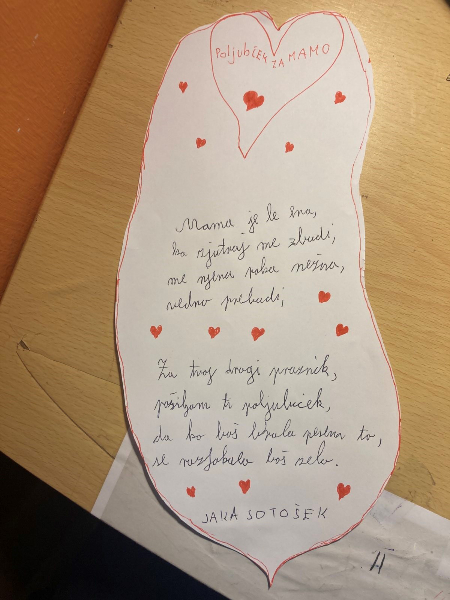 Poljubček ZA MAMO
Mama je le ena,
ko zjutraj me zbudi,
me njena roka nežna,
vedno prebudi,
Za tvoj dragi praznik,
pošiljam ti poljubček,
da ko boš brala pesem to,
se razjokala boš zelo.
JAKA SOTOŠEK